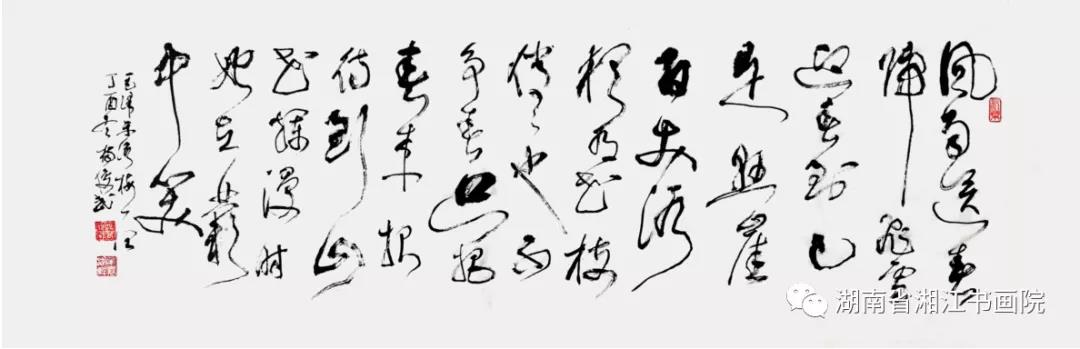 风雨送春
归飞雪
迎春到已
是悬崖
百丈冰
犹有花枝
俏俏也不
争春只把
春来报
待到山
花烂漫时
她在丛
中笑
毛泽东咏梅
丁酉冬
湖南省湘江书画院